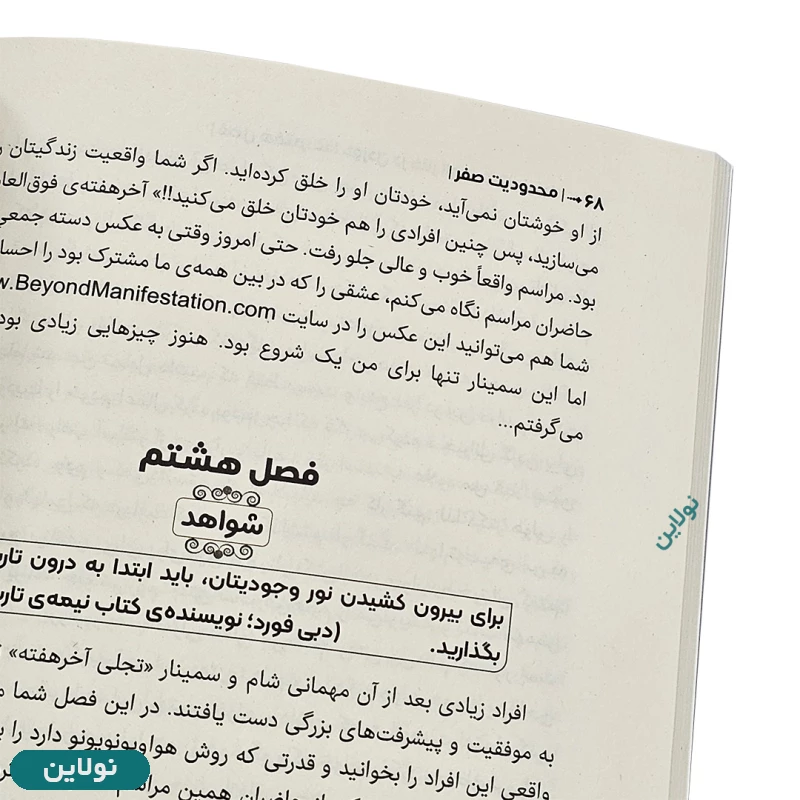 ۶۸ → | محدودیت صفر |
از او خوشتان نمی‌آید، خودتان او را خلق کرده‌اید. اگر شما واقعیت زندگیتان
می‌سازید، پس چنین افرادی را هم خودتان خلق می‌کنید!!» آخرهفته‌ی
بود. مراسم واقعاً خوب و عالی جلو رفت. حتی امروز وقتی به عکس دسته جمعی
حاضران مراسم نگاه می‌کنم، عشقی را که در بین همه‌ی ما مشترک بود را
شما هم می‌توانید این عکس را در سایت BeyondManifestation.com
اما این سمینار تنها برای من یک شروع بود. هنوز چیزهایی زیادی
می‌گرفتم...
فصل هشتم
شواهد
برای بیرون کشیدن نور وجودیتان، باید ابتدا به درون
بگذارید. (دبی فورد؛ نویسنده‌ی کتاب نیمه‌ی
افراد زیادی بعد از آن مهمانی شام و سمینار «تجلی آخرهفته»
به موفقیت و پیشرفت‌های بزرگی دست یافتند. در این فصل شما
واقعی این افراد را بخوانید و قدرتی که روش هواوپونوپونو دارد را
حاضران همین مراسم
نولاین
نولاین